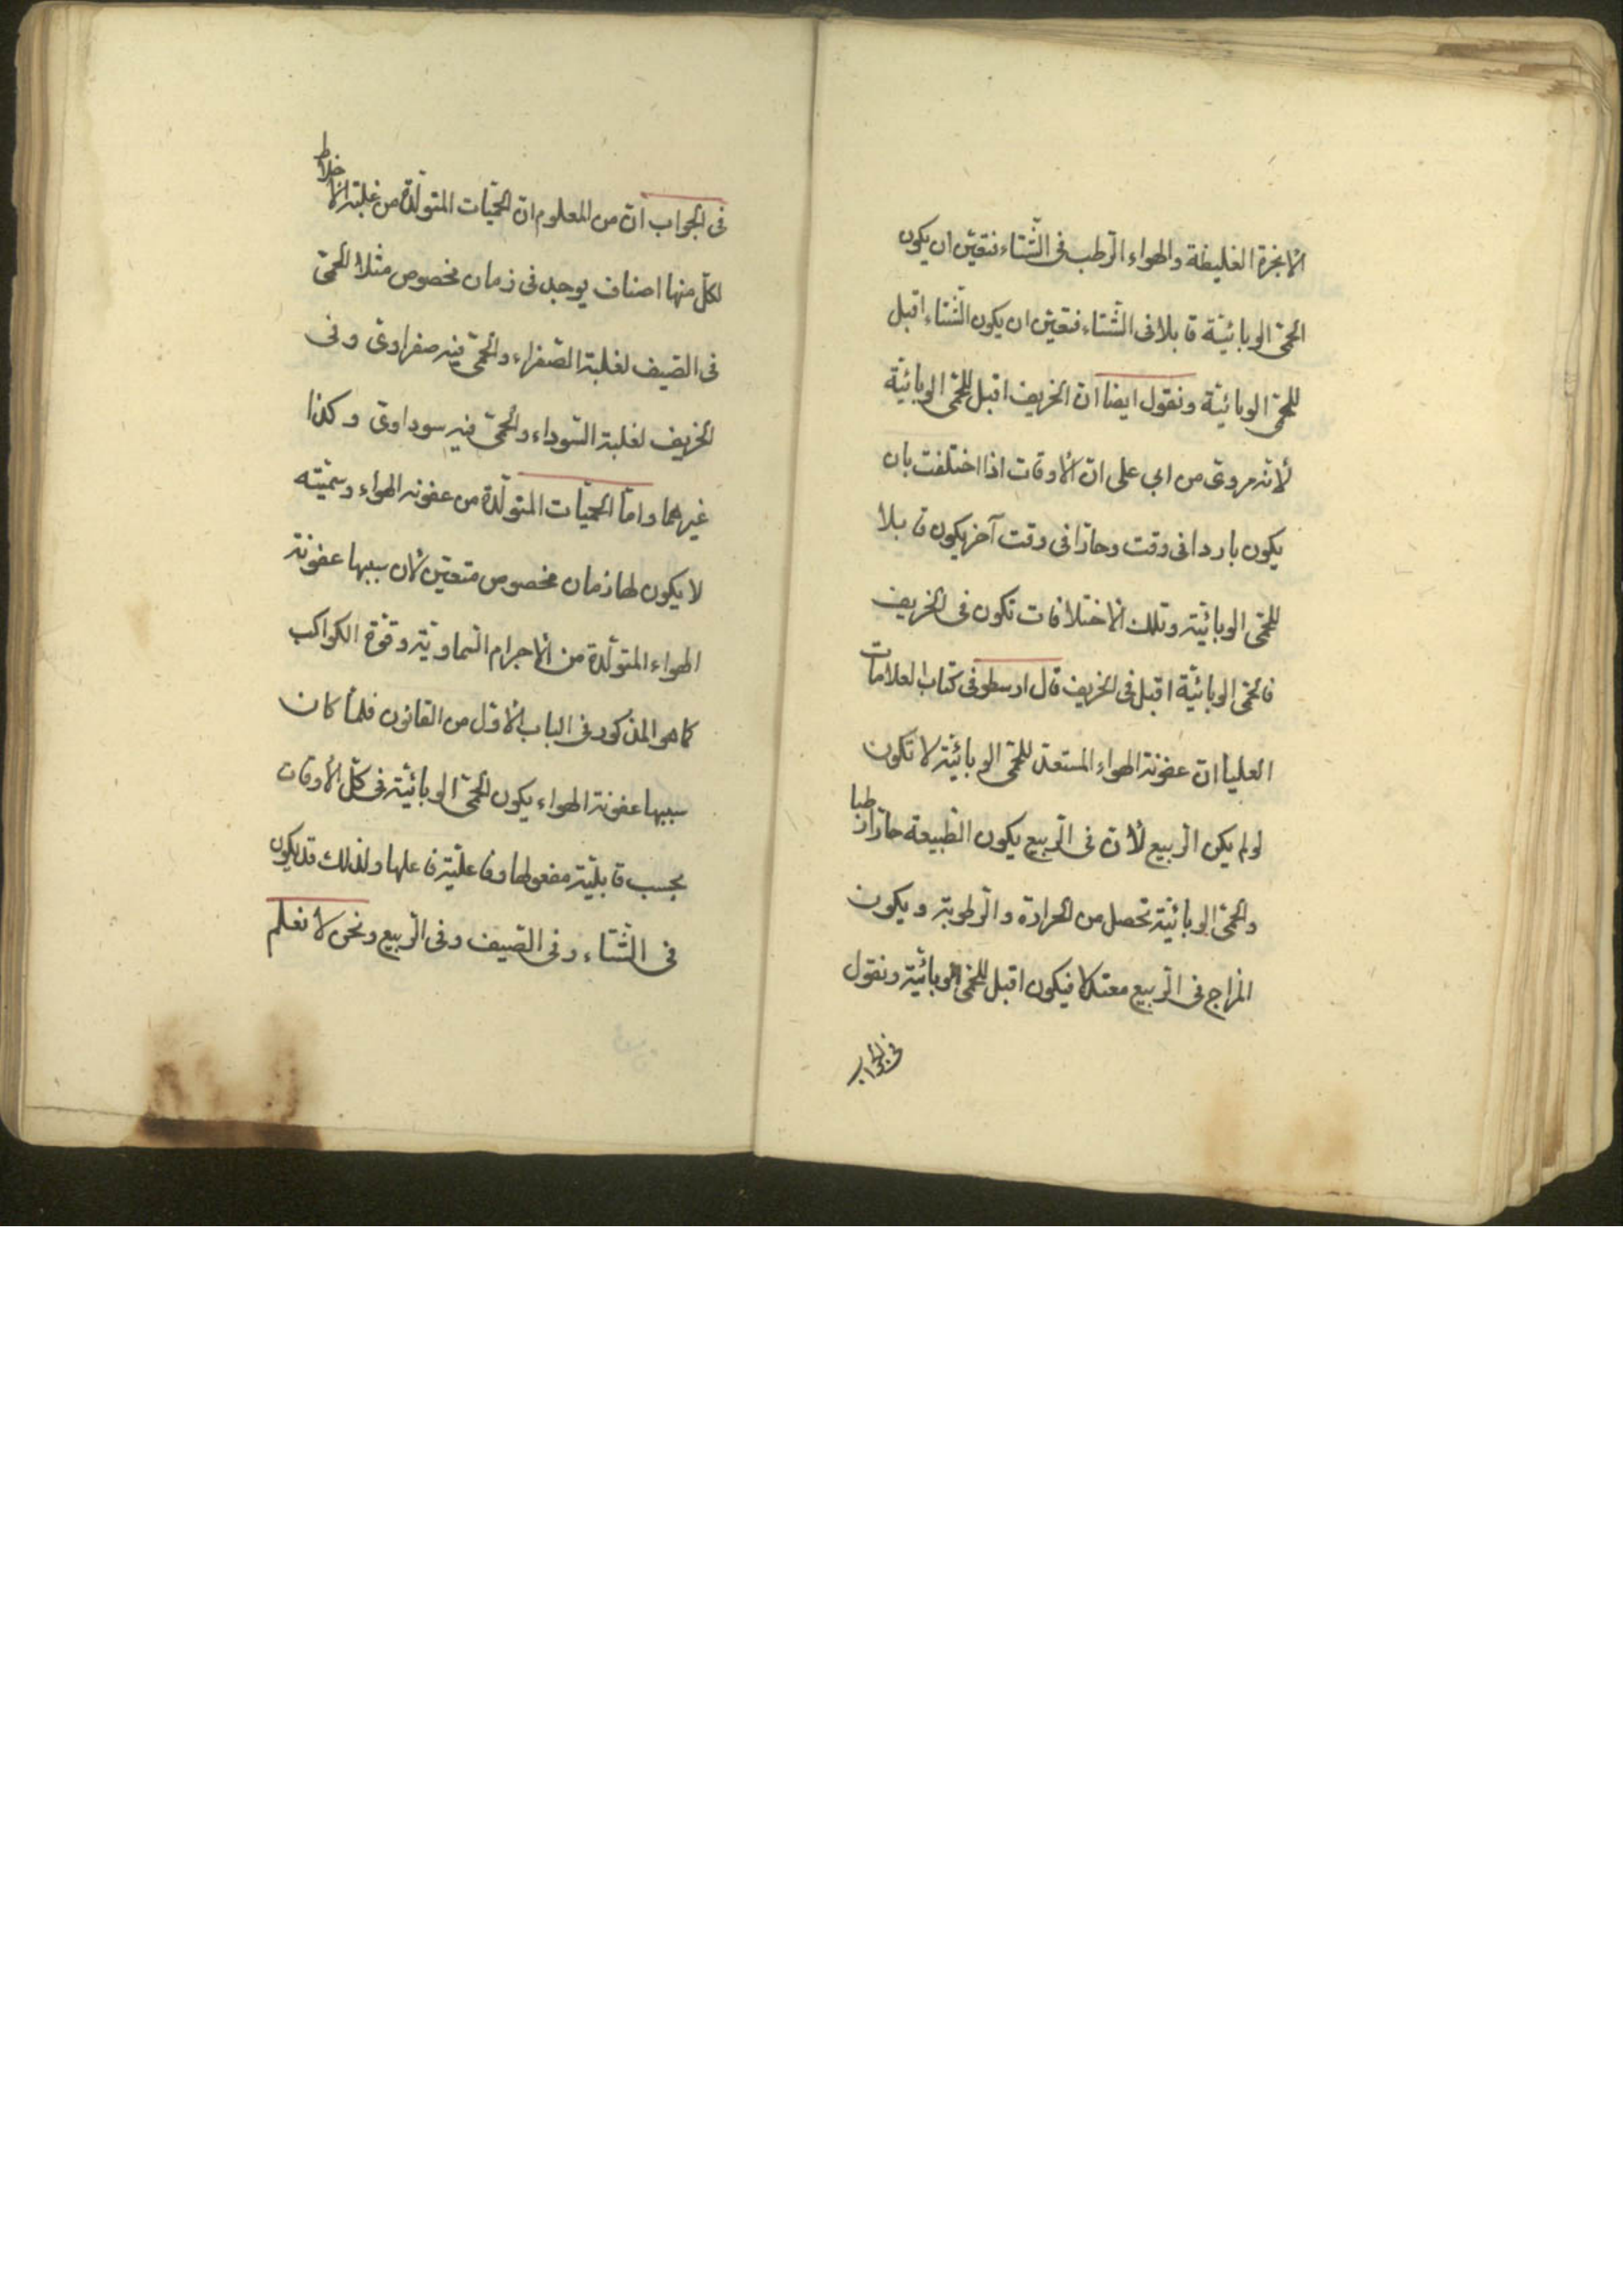 الابخرة الغليظة والهواء الرّطب فى الشّتاء فتعيّن ان يكون
الحمّى الوبائيّة قابلا فى الشّتاء فتعيّن ان يكون الشّتاء اقبل
للحمّى الوبائيّة ونقول ايضا انّ الخريف اقبل للحمّى الوبائيّة
لأنّه مروىّ من ابي على انّ الأوقات اذا اختلفت بان
يكون باردا فى وقت وحارّا فى وقت آخر يكون قابلا
للحمّى الوبائيّة وتلك الاختلافات تكون فى الخريف
فالحمّى الوبائيّة اقبل فى الخريف قال ارسطو فى كتاب العلامات
العليا انّ عفونة الهواء المستعدّ للحمّى الوبائيّة لا تكون
لو لم يكن الرّبيع لأنّ فى الرّبيع يكون الطّبيعة حارّا رطبا
والحمّى الوبائيّة تحصل من الحرارة والرّطوبة ويكون
المزاج فى الرّبيع معتدلا فيكون اقبل للحمّى الوبائيّة ونقول
فى الجواب
فى الجواب انّ من المعلوم انّ الحمّيات المتولّدة من غلبة الأخلاط
لكلّ منها اصناف يوجد فى زمان مخصوص مثلا الحمّى
فى الصّيف لغلبة الصّفراء والحمّى فيه صفراوىّ وفى
الخريف لغلبة السّوداء والحمّى فيه سوداوىّ وكذا
غيرهما وامّا الحمّيات المتولّدة من عفونة الهواء وسمّيّته
لا يكون لها زمان مخصوص متعيّن لأن سببها عفونة
الهواء المتولّدة من الأجرام السّماويّة وقوّة الكواكب
كما هو المذكور فى الباب الأوّل من القانون فلمّا كان
سببها عفونة الهواء يكون الحمّى الوبائيّة فى كلّ الأوقات
بحسب قابليّة مفعولها وفاعليّة فاعلها ولذلك قد يكون
فى الشّتاء وفى الصّيف وفى الرّبيع ونحن لا نعلم